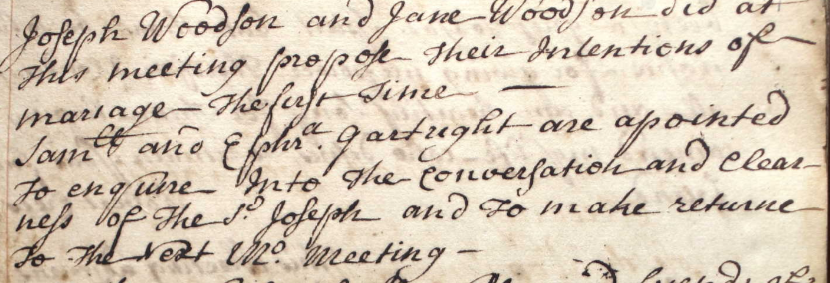 Joseph Woodson and Jane Woodson did at
this meeting propose their Intentions of
mariage the first Time —
Samll and Ephra. Gartright are apointed
To enquire Into The conversation and Clear-
ness of The sd. Joseph and To make returne
To The Next Mo. Meeting —